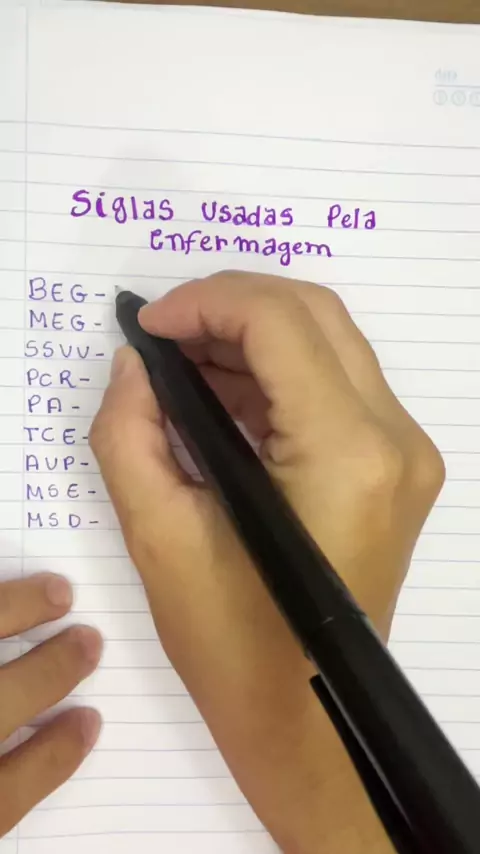 Siglas Usadas Pela
Enfermagem
BEG -
MEG -
SSVV -
PCR -
PA -
TCE -
AVP -
MSE -
MSD -